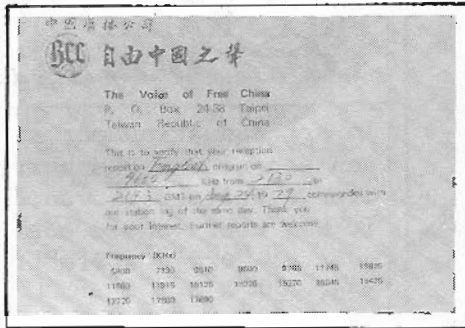 中國廣播公司
BCC 自由中國之聲
The Voice of Free China
P. O. Box 24-38 Taipei
Taiwan Republic of China
This is to verify that your reception
report on English program on
KHz from 2130 to
2143 GMT on Aug 24 19 79 corresponds with
our station log of the same day. Thank you
for your interest. Further reports are welcome.
Frequency (KHz)
7130 9510 9600 9765 11745
11860 11915 15125 15270 15345 15425
17720 17890